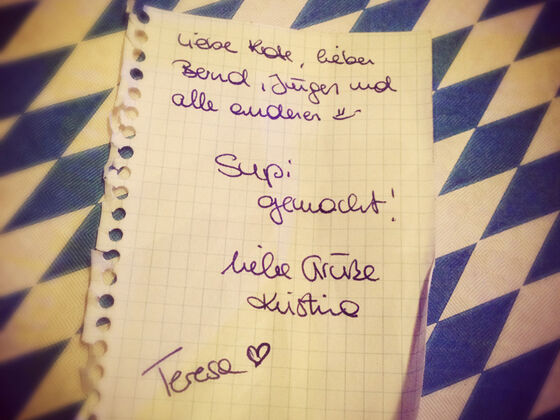 Liebe Rote, lieber
Bernd, Jürgen und
alle anderen
Supi
gemacht!
Liebe Grüße
Kristina
Teresa